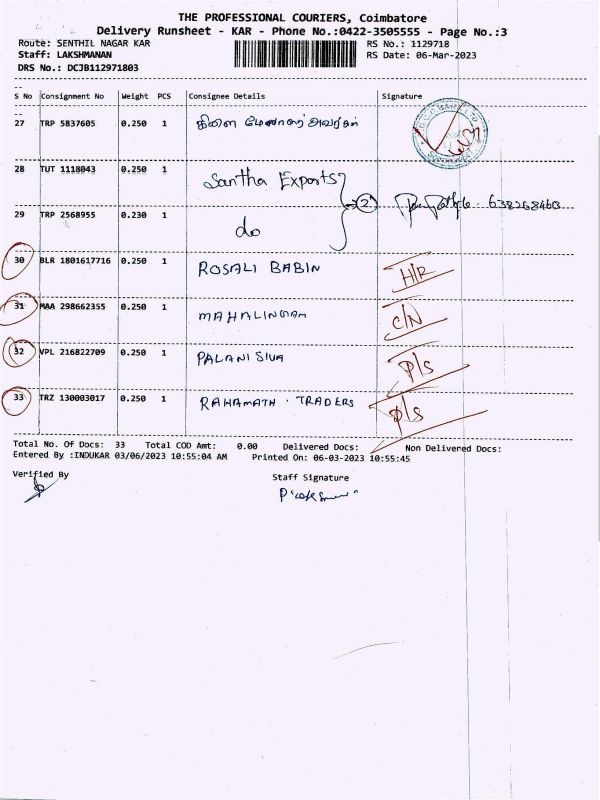 THE PROFESSIONAL COURIERS, Coimbatore
Delivery Runsheet - KAR - Phone No.:0422-3505555 - Page No.:3
Route: SENTHIL NAGAR KAR RS No.: 1129718
Staff: LAKSHMANAN RS Date: 06-Mar-2023
DRS No.: DCJB112971803
S No Consignment No Weight PCS Consignee Details Signature
27 TRP 5837605 0.250 1
28 TUT 1118043 0.250 1 Santha Exports
2
29 TRP 2568955 0.230 1 do
30 BLR 1801617716 0.250 1 ROSALI BABIN H/R
31 MAA 298662355 0.250 1 MAHALINGAM C/N
32 VPL 216822709 0.250 1 PALANISIVA P/S
33 TRZ 130003017 0.250 1 RAHAMATH . TRADERS P/S
Total No. Of Docs: 33 Total COD Amt: 0.00 Delivered Docs: Non Delivered Docs:
Entered By :INDUKAR 03/06/2023 10:55:04 AM Printed On: 06-03-2023 10:55:45
Verified By Staff Signature